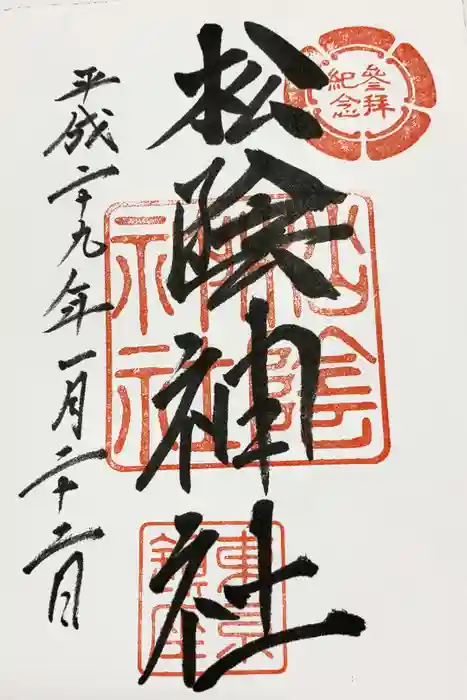 參拝
紀念
松陰神社
松陰
神社
東京
鎮座
平成二十九年一月二十二日